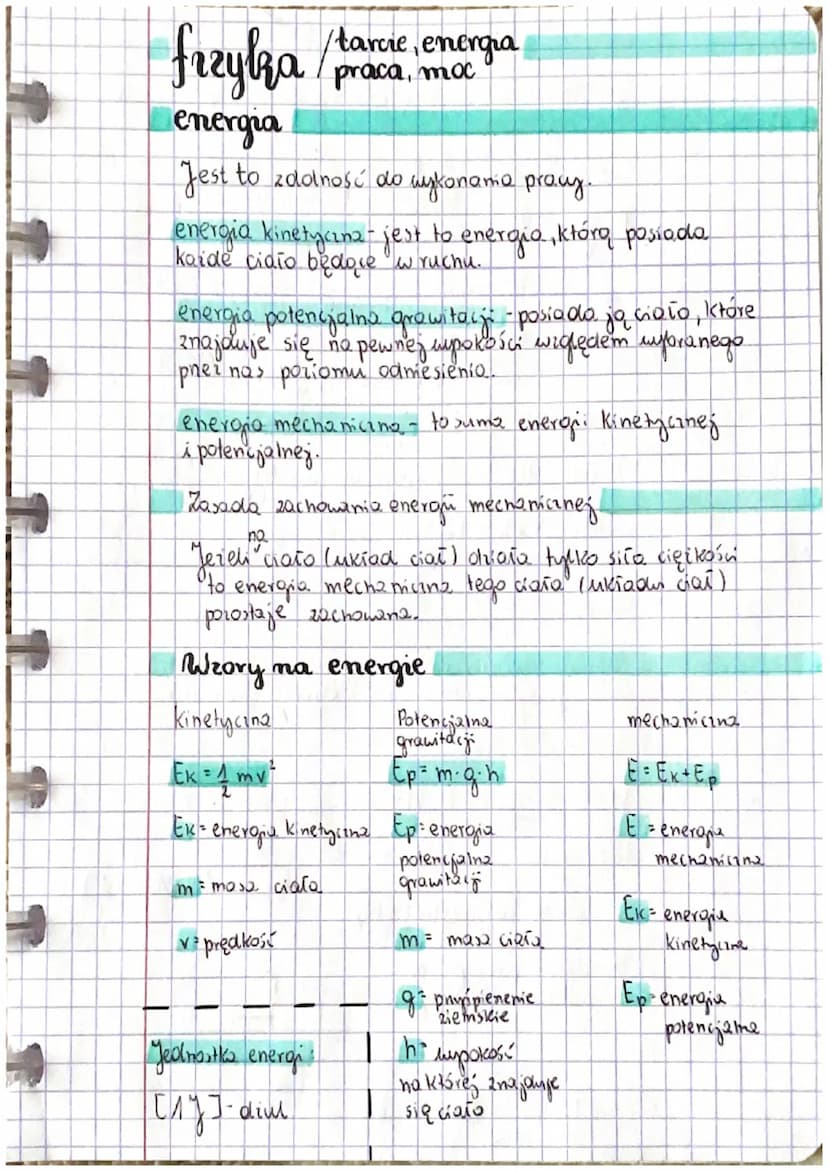 fizyka / tarcie, energia
praca, moc
energia
Jest to zdolność do wykonania pracy.
energia kinetyczna - jest to energia, którą posiada
każde ciało będące w ruchu.
energia potencjalna grawitacji - posiada ją ciało, które
znajduje się na pewnej wysokości względem wybranego
przez nas poziomu odniesienia.
energia mechaniczna - to suma energii kinetycznej
i potencjalnej.
Zasada zachowania energii mechanicznej
Jeżeli na ciało (układ ciał) działa tylko siła ciężkości
to energia mechaniczna tego ciała (układu ciał)
pozostaje zachowana.
Wzory na energie
kinetyczna
Ek = 1/2 mv²
Ek = energia kinetyczna
m = masa ciała
v = prędkość
Jednostka energi:
[1J] - dżul
Potencjalna
grawitacji
Ep = m·g·h
Ep = energia
potencjalna
grawitacji
m = masa ciała
g = przyspieszenie
ziemskie
h = wysokość
na której znajduje
się ciało
mechaniczna
E = Ek + Ep
E = energia
mechaniczna
Ek = energia
kinetyczna
Ep = energia
potencjalna